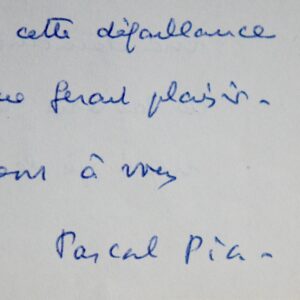 cette défaillance
me ferait plaisir.
à vous
Pascal Pia.